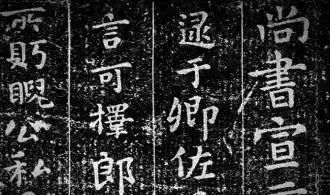 尚書宣
逮于卿佐
言可擇郎
所貺公私